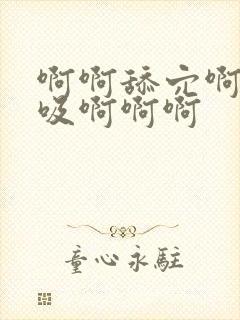 啊啊舔穴啊
吸啊啊啊
童心永駐